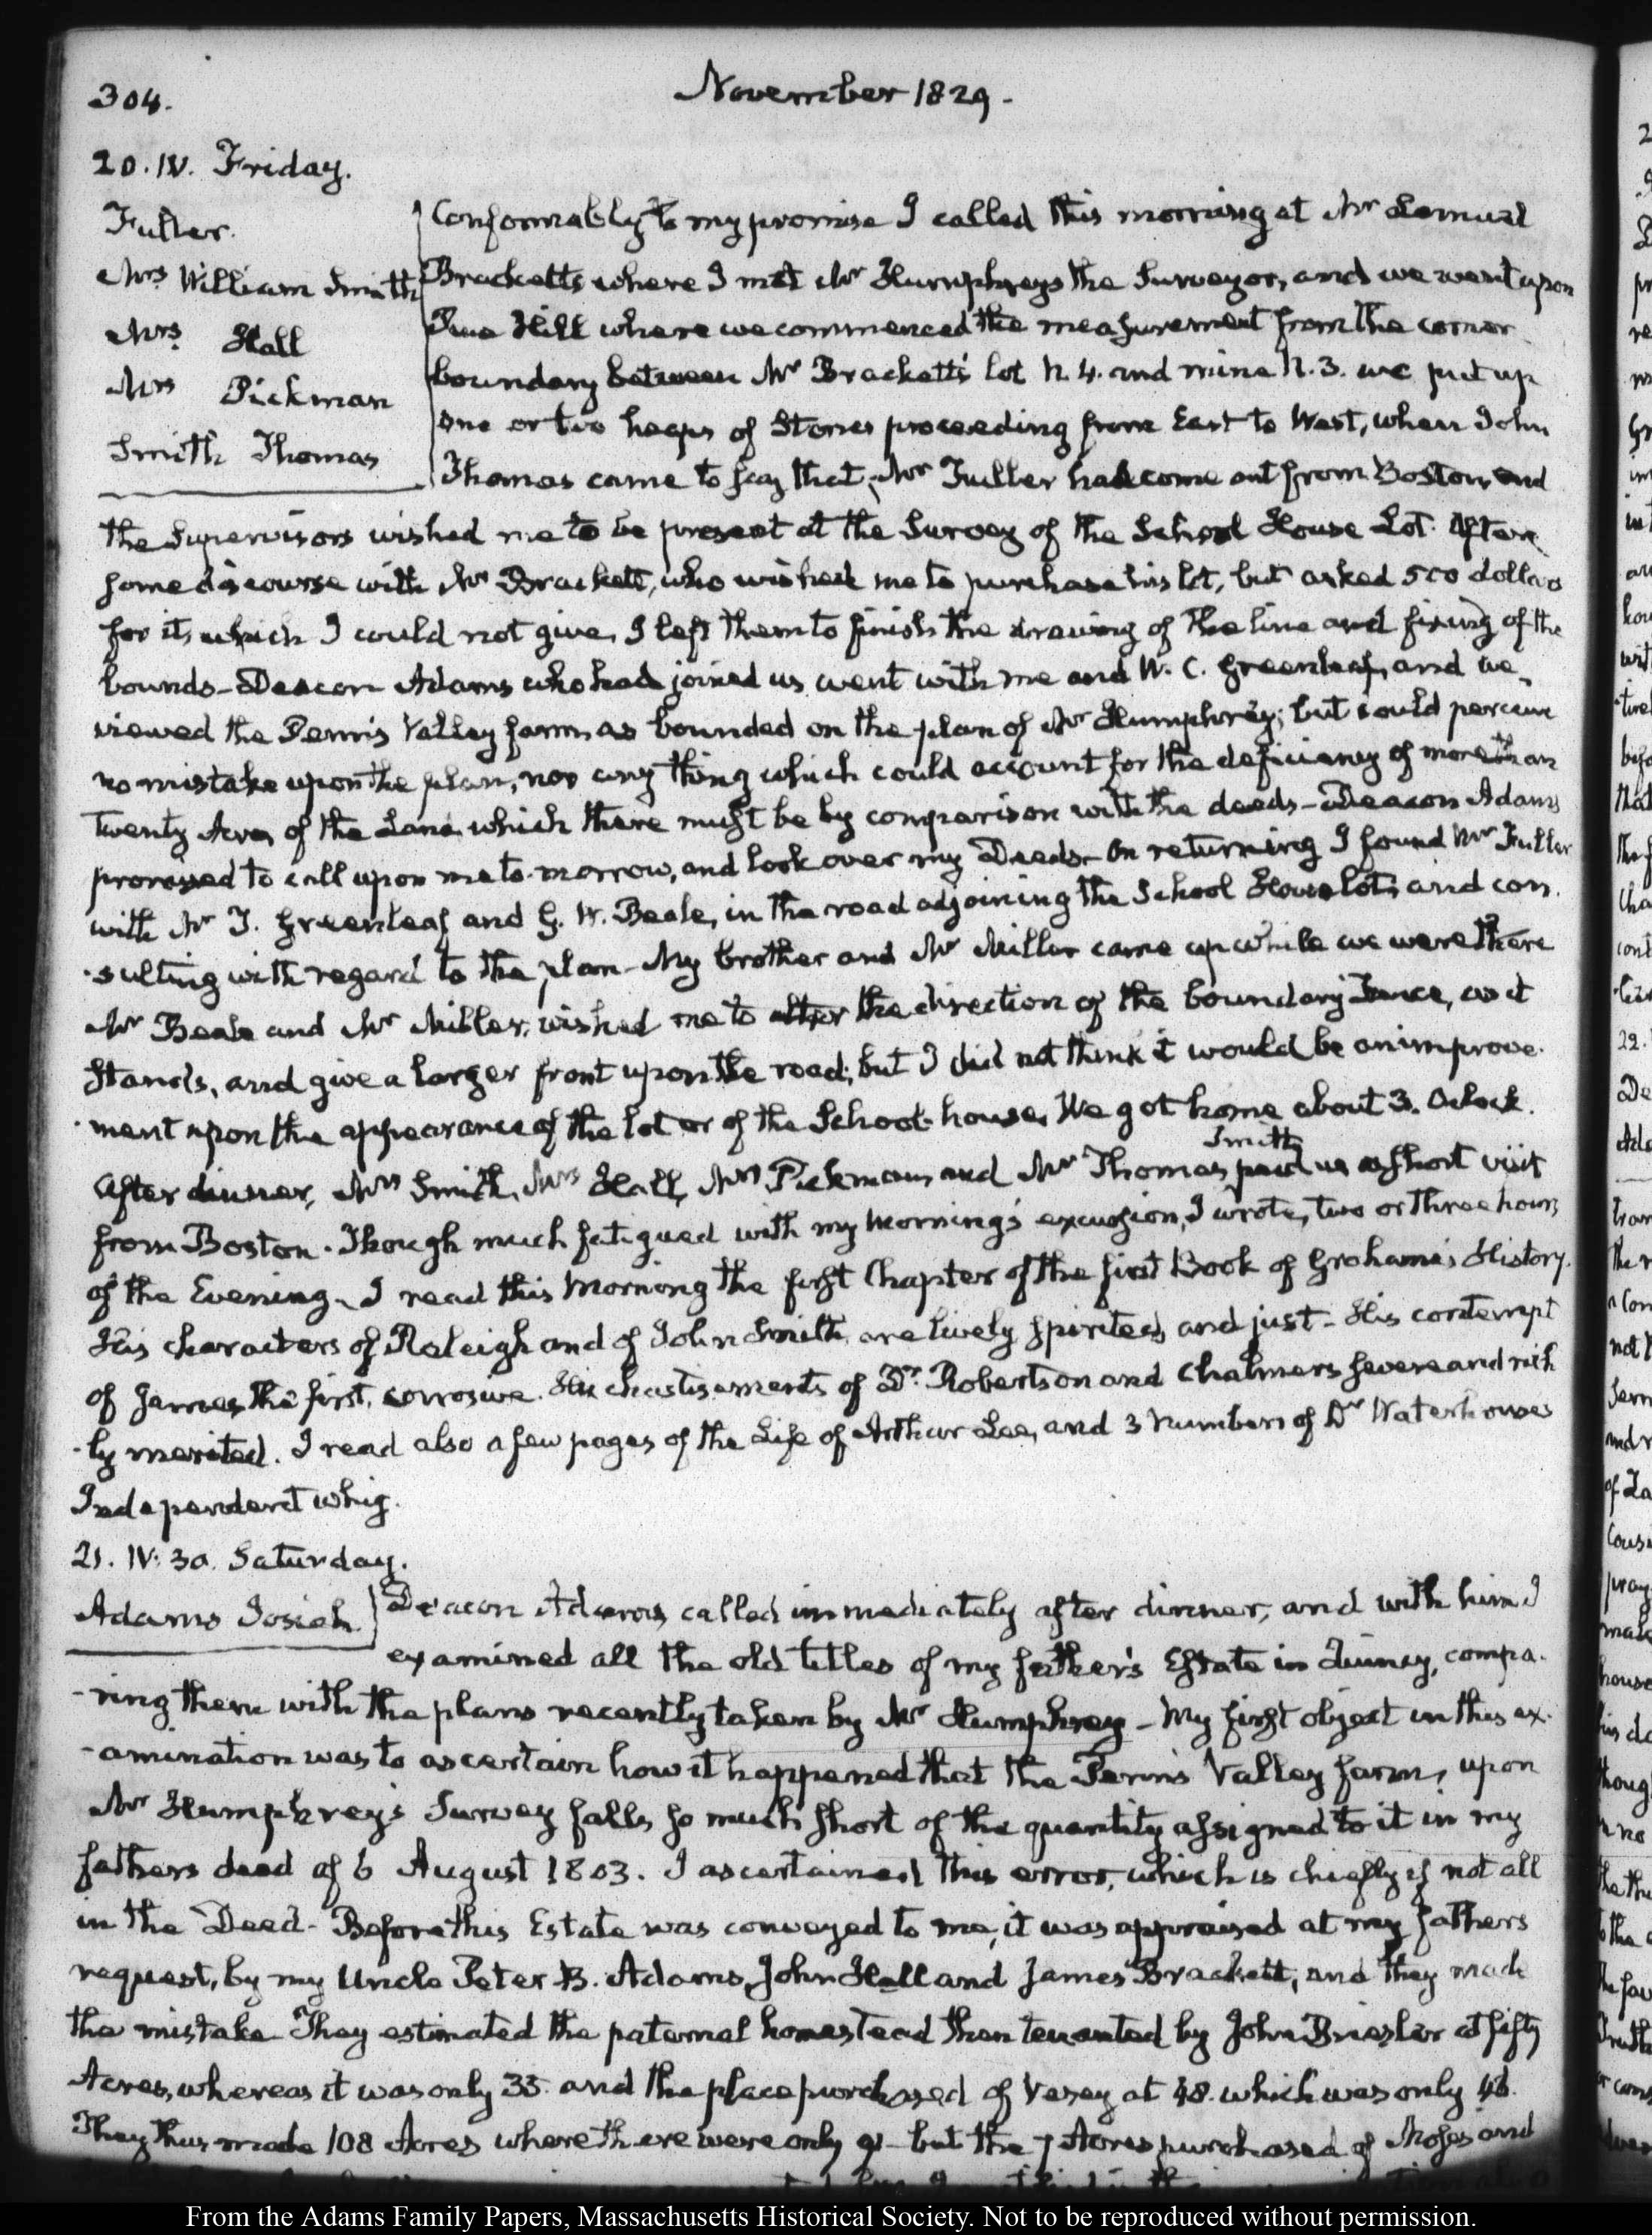 304.
November 1829.
20. IV. Friday.
Fuller.
Mrs William Smith
Mrs Hall
Mrs Pickman
Smith Thomas
Conformably to my promise I called this morning at Mr Lemuel
Bracketts where I met Mr Humphreys the Surveyor, and we went upon
Hill where we commenced the measurement from the corner
boundary between Mr Brackett's lot N. 4. and mine N. 3. we put up
one or two heaps of Stones proceeding from East to West, when John
Thomas came to say that Mr Fuller had come out from Boston, and
the Supervisors wished me to be present at the Survey of the School House Lot. After
some discourse with Mr Brackett, who wished me to purchase his lot, but asked 500 dollars
for it, which I could not give, I left them to finish the drawing of the line and fixing of the
bounds – Deacon Adams who had joined us went with me and W. C. Greenleaf, and we
viewed the Penn's Valley farm, as bounded on the plan of Mr Humphrey; but could perceive
no mistake upon the plan, nor any thing which could account for the deficiency of more than
twenty Acres of the Land which there must be by comparison with the deeds – Deacon Adams
promised to call upon me to-morrow, and look over my Deeds – On returning I found Mr Fuller
with Mr T. Greenleaf and G. W. Beale, in the road adjoining the School House lot; and con-
-sulting with regard to the plan – My brother and Mr Miller came up while we were there
Mr Beale and Mr Miller, wished me to alter the direction of the boundary Fence, as it
Stands, and give a larger front upon the road; but I did not think it would be an improve-
-ment upon the appearance of the lot or of the School-house. We got home about 3. O'clock.
After dinner, Mrs Smith, Mrs Hall, Mrs Pickman, and Mr Thomas Smith paid us a short visit
from Boston. Though much fatigued with my Morning's excursion, I wrote, two or three hours
of the Evening – I read this Morning the first Chapter of the first Book of Grahame's History.
His characters of Raleigh and of John Smith are lively spirited, and just – His contempt
of James the first, corrosive. His chastisements of Dr. Robertson and Chalmers severe and rich
-ly merited. I read also a few pages of the Life of Arthur Lee, and 3 Numbers of Dr Waterhouse's
Independent Whig.
21. IV: 30. Saturday.
Adams Josiah.
Deacon Adams called immediately after dinner, and with him I
examined all the old titles of my father's Estate in Quincy, compa-
-ring them with the plans recently taken by Mr Humphrey – My first object in this ex-
-amination was to ascertain how it happened that the Penn's Valley farm, upon
Mr Humphrey's Survey falls so much short of the quantity assigned to it in my
fathers deed of 6 August 1803. I ascertained this error, which is chiefly if not all
in the Deed – Before this Estate was conveyed to me, it was appraised at my fathers
request, by my Uncle Peter B. Adams, John Hall and James Brackett, and they made
the mistake. They estimated the paternal homestead then tenanted by John Briesler at fifty
Acres, whereas it was only 35. and the place purchased of Vesey at 48. which was only 46.
They thus made 108 Acres where there were only 91 – but the 7 Acres purchased of Moses and